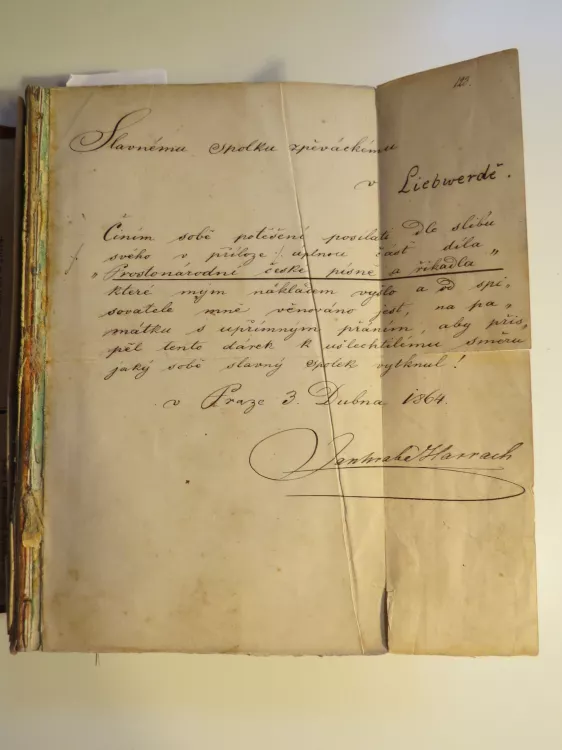 123.
Slavnému spolku zpěváckému
v Liebwerdě.
Činím sobě potěšení posílati dle slibu
svého v příloze úplnou část díla
„Prostonárodní české písně a říkadla“
které mým nákladem vyšlo a od spi„
sovatele mně věnováno jest, na pa„
mátku s upřímným přáním, aby přis„
pěl tento dárek k ušlechtilému směru
jaký sobě slavný spolek vytknul!
v Praze 3. Dubna 1864.
Jan hrabě Harrach